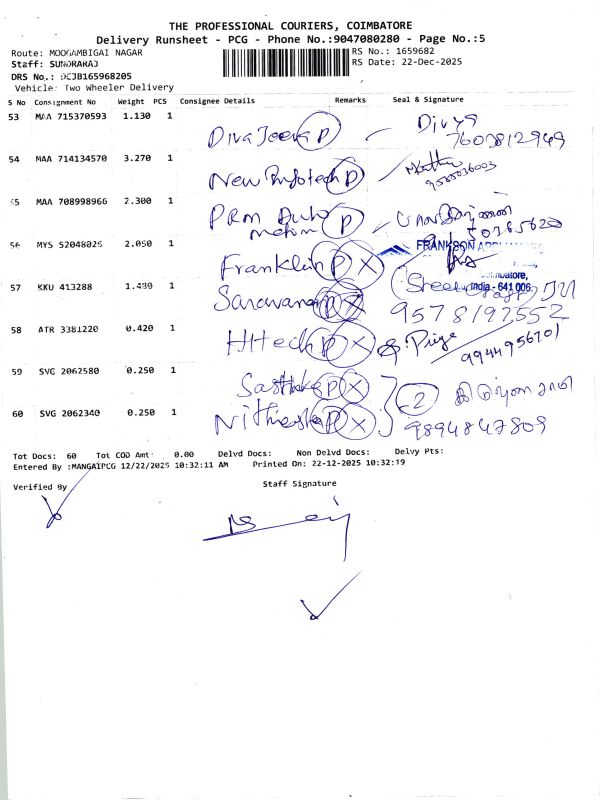 THE PROFESSIONAL COURIERS, COIMBATORE
Delivery Runsheet - PCG - Phone No.:9047080280 - Page No.:5
Route: MOOGAMBIGAI NAGAR RS No.: 1659682
Staff: SUNDRARAJ RS Date: 22-Dec-2025
DRS No.: DCJB165968205
Vehicle: Two Wheeler Delivery
S No Consignment No Weight PCS Consignee Details Remarks Seal & Signature
53 MAA 715370593 1.130 1
P Divya
7603812949
54 MAA 714134570 3.270 1
New Infotech P
9585036003
55 MAA 708998966 2.300 1
P
56 MYS 52048026 2.050 1
FRANKSON
Franklin P X
Coimbatore,
57 KKU 413288 1.430 1
India - 641 006.
Saravana P X
9578192552
58 ATR 3381220 0.420 1
Hitech P X
9944956701
59 SVG 2062580 0.250 1
P X 2
60 SVG 2062340 0.250 1
P X 9894847809
Tot Docs: 60 Tot COD Amt: 0.00 Delvd Docs: Non Delvd Docs: Delvy Pts:
Entered By :MANGAIPCG 12/22/2025 10:32:11 AM Printed On: 22-12-2025 10:32:19
Verified By Staff Signature